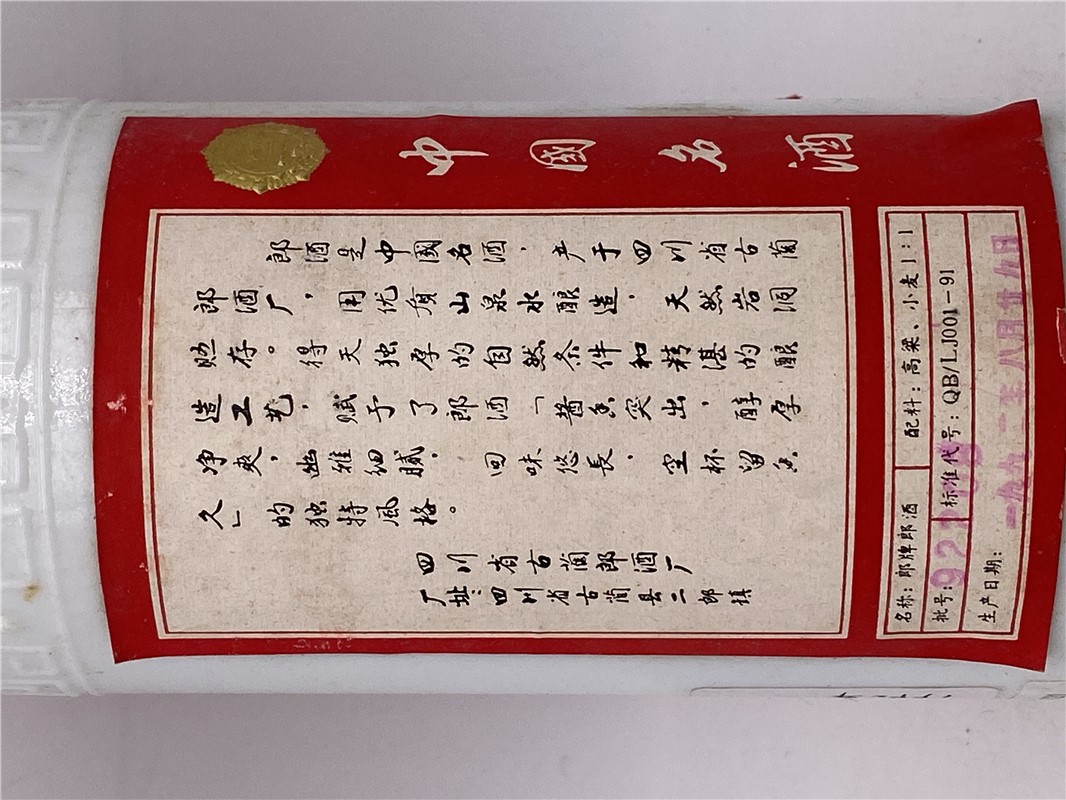 中國名酒
郎酒是中國名酒，产于四川省古藺
郎酒厂，用优质山泉水酿造，天然岩洞
贮存。得天独厚的自然条件和精湛的酿
造工艺，赋予了郎酒「酱香突出，醇厚
净爽，幽雅细腻，回味悠長，空杯留香
久」的独特风格。
四川省古藺郎酒厂
厂址：四川省古藺县二郎镇
名称：郎牌郎酒 配料：高粱、小麦1：1
批号：922 标准代号：QB/LJ001-91
生产日期：一九九二年八月廿九日